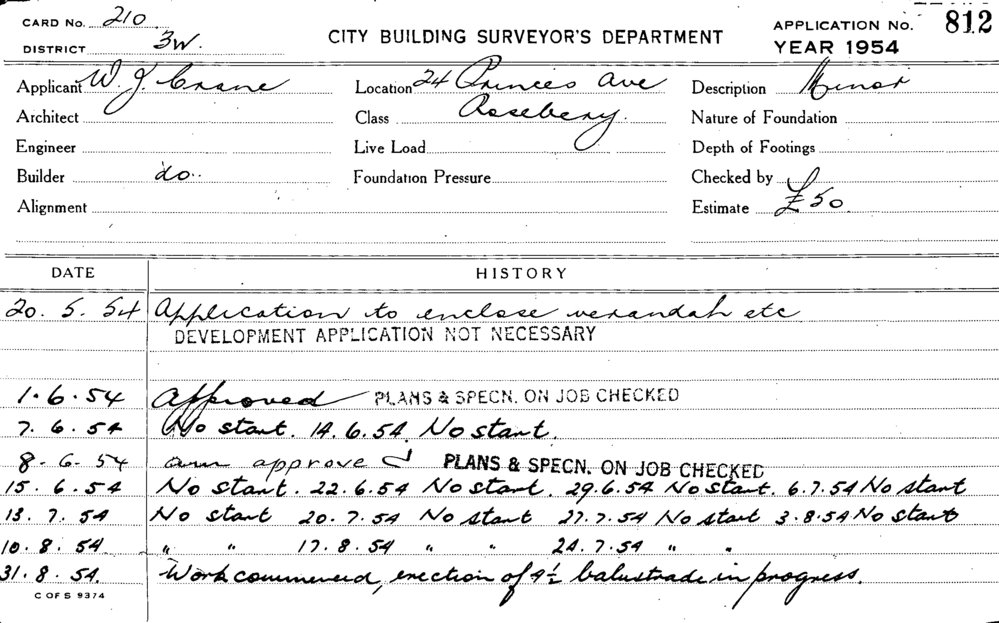 CARD No. 210
DISTRICT 3W.
CITY BUILDING SURVEYOR'S DEPARTMENT
APPLICATION No. 812
YEAR 1954
Applicant W. J. Crane Location 24 Princes Ave Description Minor
Architect Class Rosebery. Nature of Foundation
Engineer Live Load Depth of Footings
Builder do. Foundation Pressure Checked by
Alignment Estimate £50.
DATE HISTORY
20. 5. 54 Application to enclose verandah etc
DEVELOPMENT APPLICATION NOT NECESSARY
1.6.54 Approved PLANS & SPECN. ON JOB CHECKED
7. 6. 54 No start. 14.6.54. No start.
8.6.54 approve PLANS & SPECN. ON JOB CHECKED
15. 6. 54 No start. 22.6.54 No start. 29.6.54 No start. 6.7.54 No start
13. 7. 54 No start 20.7.54 No start 27.7.54 No start 3.8.54 No start
10. 8. 54 " " 17.8.54 " " 24.7.54 " "
31. 8. 54. Work commenced, erection of 4½ balustrade in progress.
C OF S 9374